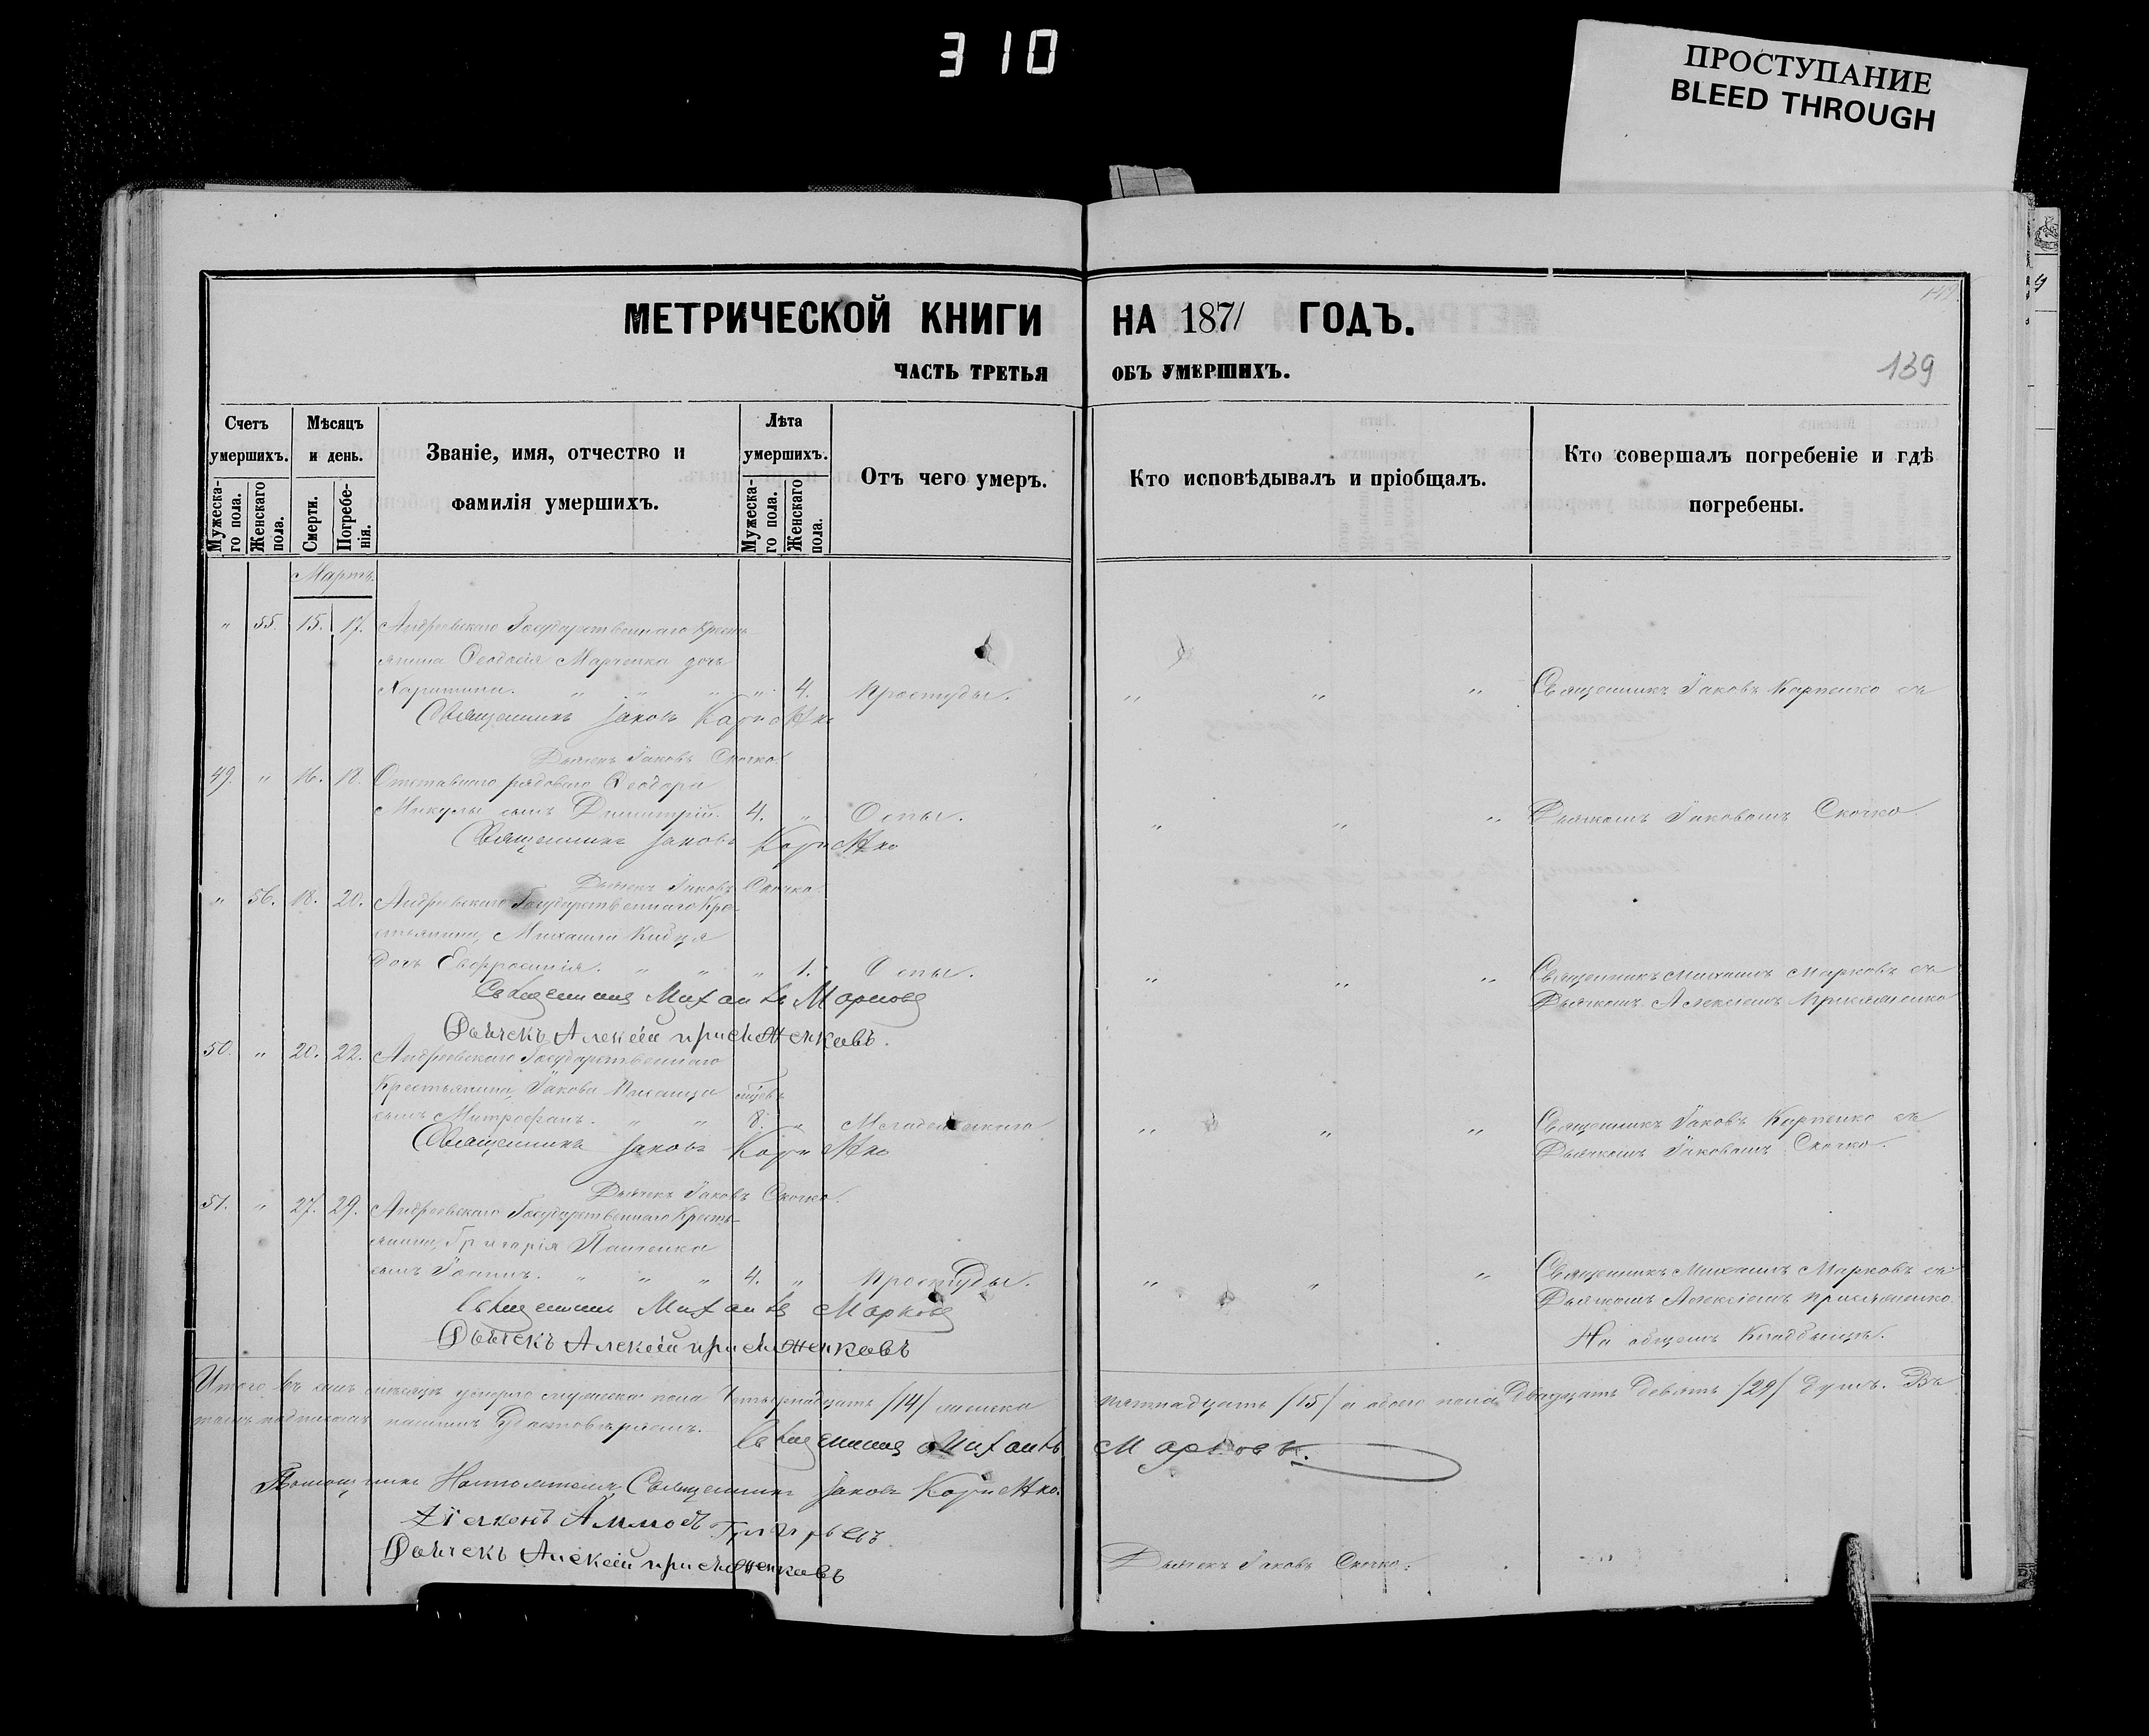 310
ПРОСТУПАНИЕ
BLEED THROUGH
МЕТРИЧЕСКОЙ КНИГИ НА 1871 ГОДЪ.
ЧАСТЬ ТРЕТЬЯ ОБЪ УМЕРШИХЪ.
139
Счетъ умершихъ.
Мужеска-го пола.
Женскаго пола.
Мѣсяцъ и день.
Смерти.
Погребе-нія.
Званіе, имя, отчество и фамилія умершихъ.
Лѣта умершихъ.
Мужеска-го пола.
Женскаго пола.
Отъ чего умеръ.
Кто исповѣдывалъ и пріобщалъ.
Кто совершалъ погребеніе и гдѣ погребены.
Мартъ.
" 55. 15. 17. Андреевскаго Государственнаго Кресть-
янина Ѳеодосія Марченка дочь
Харитина. " " " " 4. Простуды. " " " Священникъ Іаковъ Карпенко съ
Священникъ Іаковъ Карпенко
Дьячекъ Іаковъ Скочко.
49. " 16. 18. Отставнаго рядоваго Ѳеодора
Микулы сынъ Димитрій. 4. " Оспы. " " " Дьячкомъ Іаковомъ Скочко.
Священникъ Іаковъ Карпенко
Дьячекъ Іаковъ Скочко.
" 56. 18. 20. Андреевскаго Государственнаго Кре-
стьянина, Михаила
Дочь Евфросинія. " " " 1. Оспы. " " " Священникъ Михаилъ Марковъ съ
Священникъ Михаилъ Марковъ
Дьячкомъ Алексіемъ
Дьячекъ Алексѣй
50. " 20. 22. Андреевскаго Государственнаго
Крестьянина, Іакова
сынъ Митрофанъ. " " 8. " Младенческаго " " " Священникъ Іаковъ Карпенко съ
Священникъ Іаковъ Карпенко
Дьячкомъ Іаковомъ Скочко.
Дьячекъ Іаковъ Скочко.
51. " 27. 29. Андреевскаго Государственнаго Кресть-
янина, Григорія Панченка
сынъ Іоаннъ. " " " 4. " Простуды. " " " Священникъ Михаилъ Марковъ съ
Священникъ Михаилъ Марковъ
Дьячкомъ Алексіемъ
Дьячекъ Алексѣй
На общемъ Кладбищѣ.
Итого въ семъ мѣсяцѣ умерло мужеска пола Четырнадцать /14/ женска пятнадцать /15/ а обоего пола Двадцать Девять /29/ душъ. Въ
томъ подписомъ нашимъ удостовѣряемъ.
Священникъ Михаилъ Марковъ.
Помощникъ Настоятеля, Священникъ Іаковъ Карпенко.
Дьячекъ Алексѣй
Дьячекъ Іаковъ Скочко.